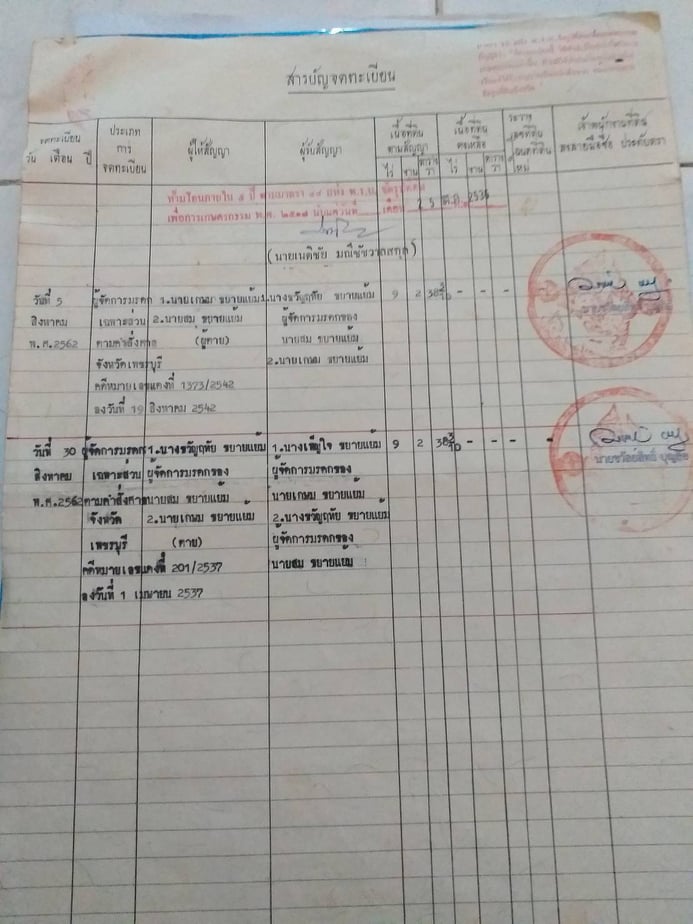 สารบัญจดทะเบียน
จดทะเบียน
วัน เดือน ปี
ประเภท
การ
จดทะเบียน
ผู้ให้สัญญา
ผู้รับสัญญา
เนื้อที่ดิน
ตามสัญญา
ไร่ งาน ตาราง วา
เนื้อที่ดิน
คงเหลือ
ไร่ งาน ตาราง วา
ระวาง
เลขที่ดิน
โฉนดที่ดิน
ใหม่
เจ้าพนักงานที่ดิน
ลงลายมือชื่อ ประทับตรา
ห้ามโอนภายใน ๕ ปี ตามมาตรา
เพื่อการเกษตรกรรม พ.ศ. ๒๕๑๗ นับแต่วันที่ เดือน 25 ต.ค. 2536
วันที่ 5 ผู้จัดการมรดก 1.นายเกษม ขยายแย้ม 1.นางขวัญฤทัย ขยายแย้ม 9 2 38 - - - -
สิงหาคม เฉพาะส่วน 2.นายสม ขยายแย้ม ผู้จัดการมรดกของ
พ.ศ.2562 ตามคำสั่งศาล (ผู้ตาย) นายสม ขยายแย้ม
จังหวัดเพชรบุรี 2.นายเกษม ขยายแย้ม
คดีหมายเลขแดงที่ 1373/2542
ลงวันที่ 19 สิงหาคม 2542
วันที่ 30 ผู้จัดการมรดก 1.นางขวัญฤทัย ขยายแย้ม 1.นางเพ็ญใจ ขยายแย้ม 9 2 38 - - - -
สิงหาคม เฉพาะส่วน ผู้จัดการมรดกของ ผู้จัดการมรดกของ
พ.ศ.2562 ตามคำสั่งศาล นายสม ขยายแย้ม นายเกษม ขยายแย้ม
จังหวัด 2.นายเกษม ขยายแย้ม 2.นางขวัญฤทัย ขยายแย้ม
เพชรบุรี (ตาย) ผู้จัดการมรดกของ
คดีหมายเลขแดงที่ 201/2537 นายสม ขยายแย้ม
ลงวันที่ 1 เมษายน 2537